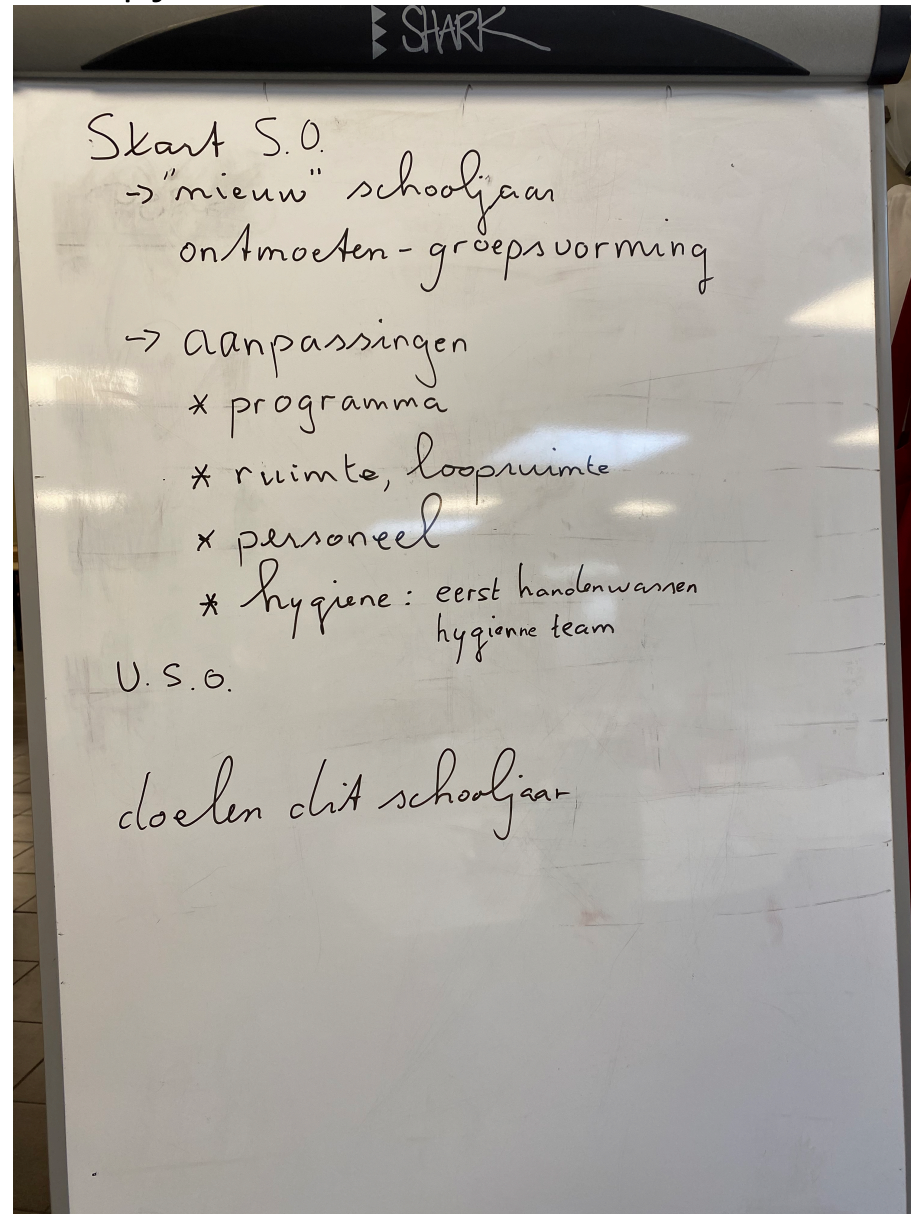 SHARK
Start S.O.
→ "nieuw" schooljaar
ontmoeten - groepsvorming
→ aanpassingen
* programma
* ruimte, loopruimte
* personeel
* hygiene : eerst handenwassen
hygienne team
U.S.O.
doelen dit schooljaar